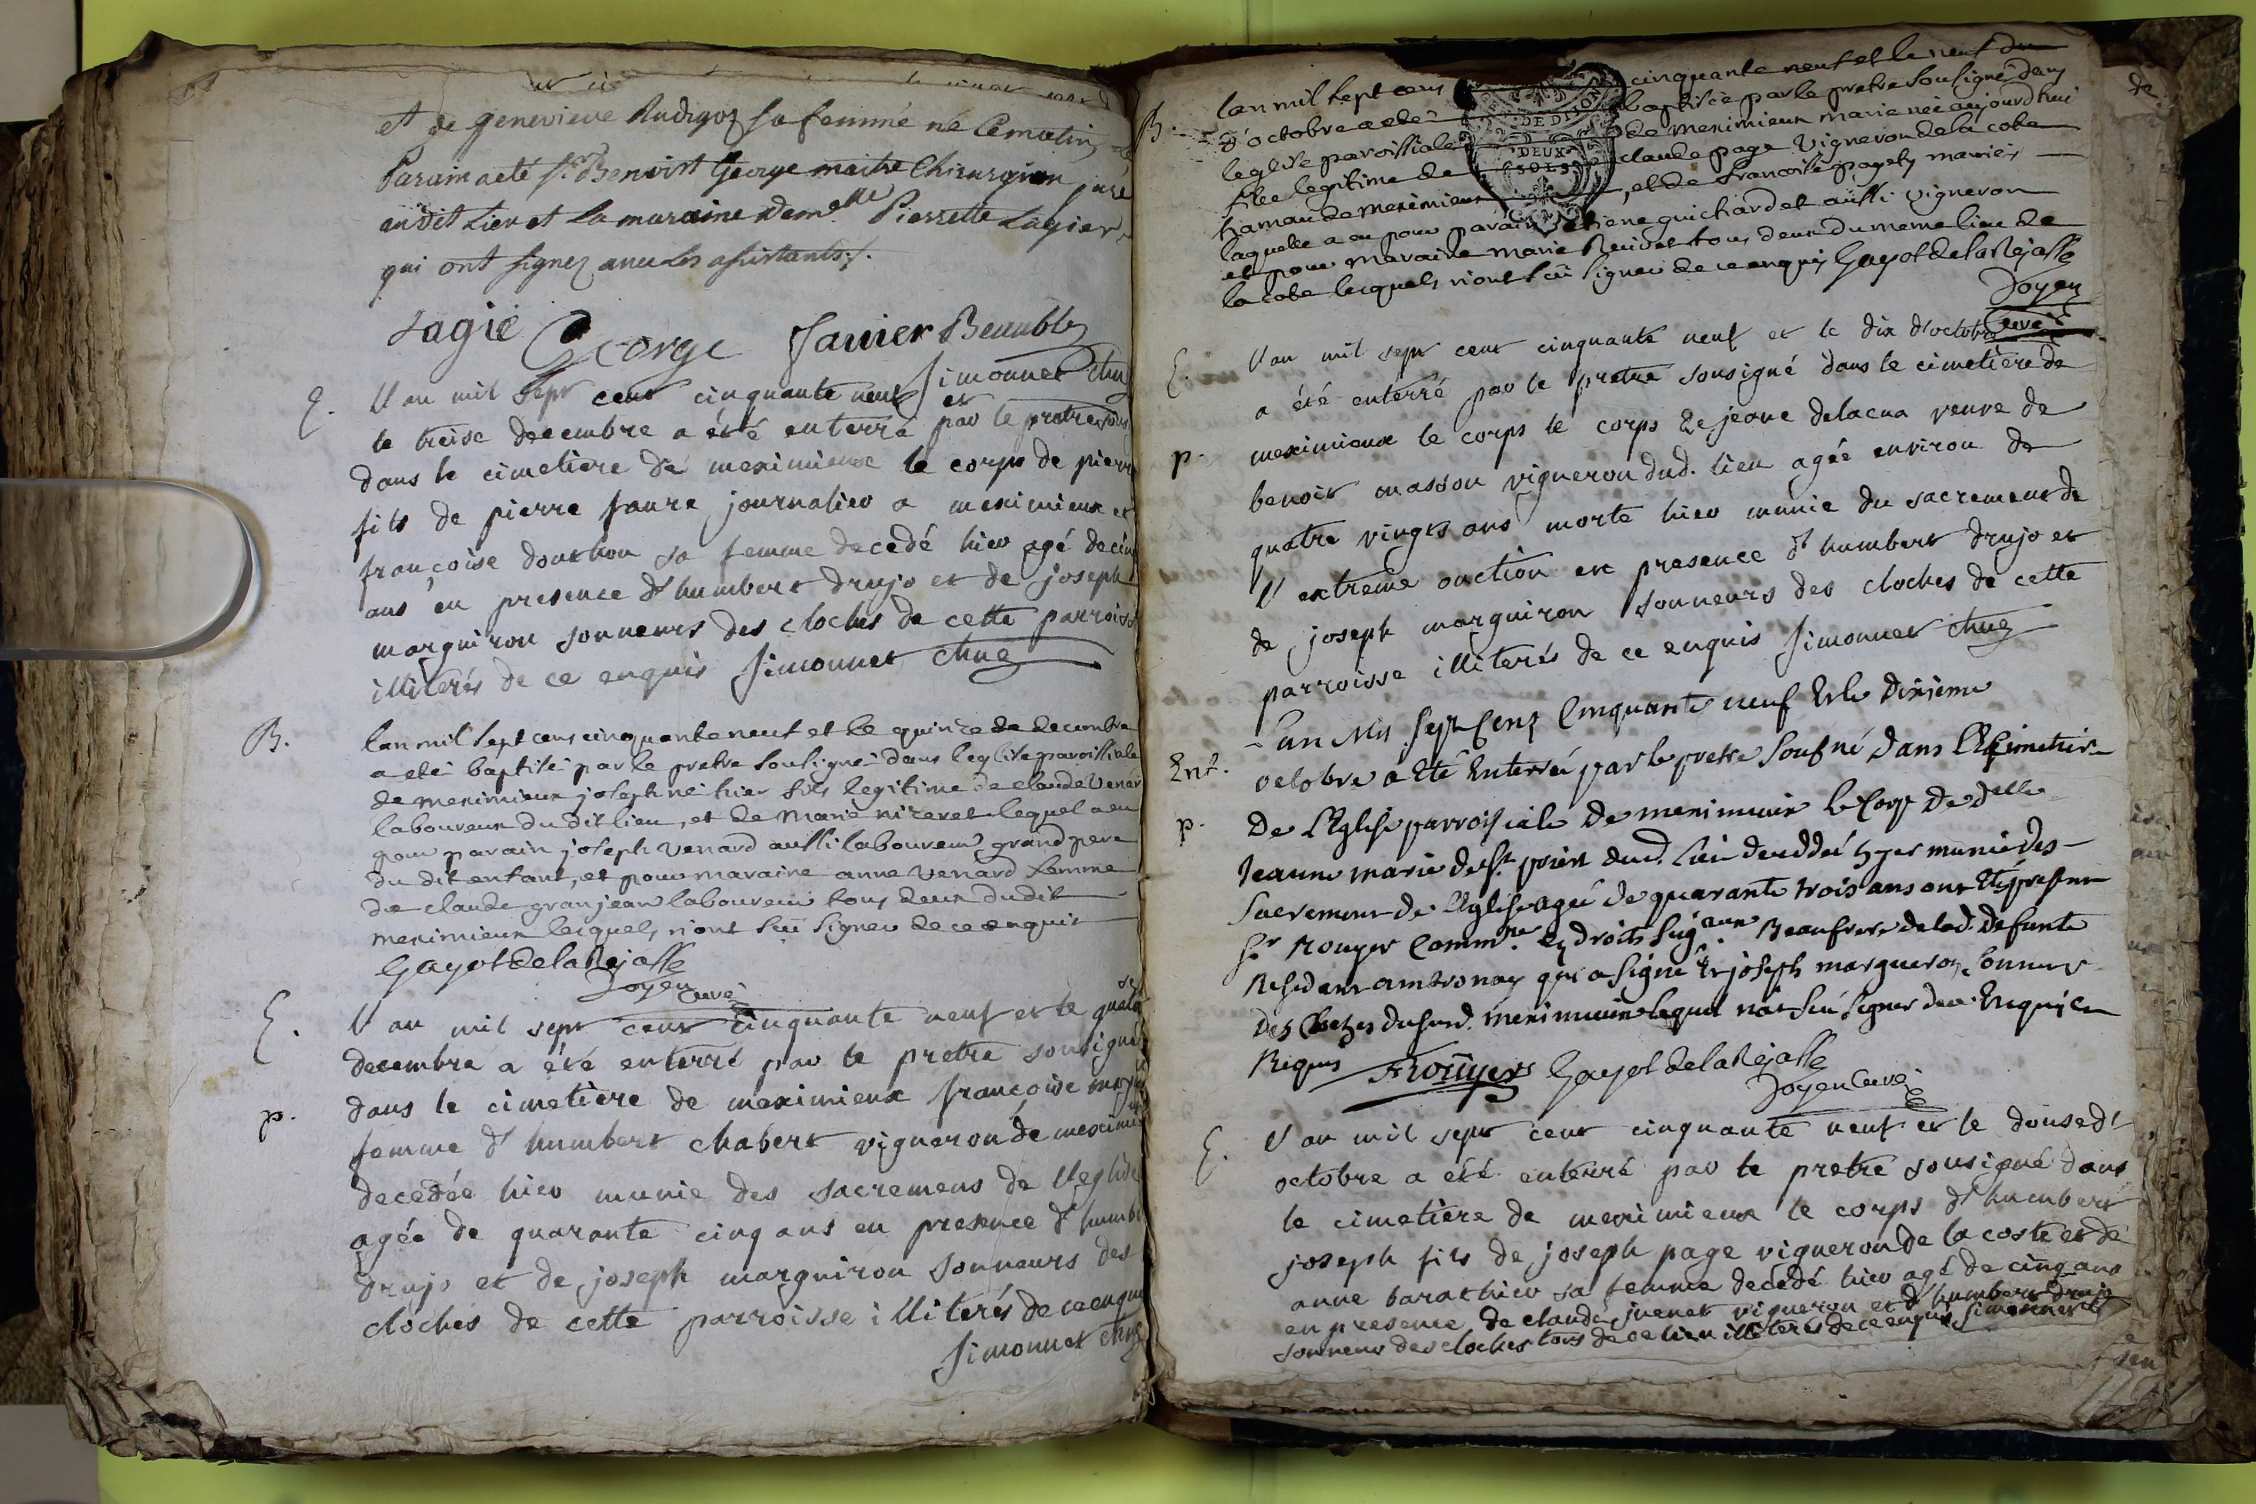 et de genevieve Rudigoz sa femme né Cematin
Parain a eté Sr Benoist George maitre Chirurgien juré
audit Lieu et La maraine demelle Pierrette Lagier
qui ont signez avec les assistants ./.
Lagié George Janier
Simonnet chne
E. L'an mil sept cent cinquante neuf et
le treise decembre a été enterré par le pretre sous
dans le cimetiere de meximieux le corps de pierre
fils de pierre faure journalier a meximieux et
françoise douthon sa femme decedé hier agé de cinq
ans en presence d'humbert drujo et de joseph
marguiron sonneurs des cloches de cette parroisse
illiterés de ce enquis Simonnet chne
B. lan mil sept cens cinquante neuf et le quinze de decembre
a eté baptisé par le pretre soussigné dans leglise paroissiale
de meximieux joseph né hier fils legitime de claude Venar
laboureur du dit lieu, et de Marie nizeret lequel a eu
pour parain joseph Venard aussi laboureur grand pere
du dit enfant, et pour maraine anne Venard femme
de claude granjean laboureur tous deux du dit
meximieux lesquels n'ont sçu signer de ce enquis
Gayot de la Rejasse
Doyen Curé
E. L'an mil sept cent cinquante neuf et le
decembre a été enterré par le pretre sousigné
p. dans le cimetiere de meximieux françoise
femme d'humbert chabert vigneron de meximi
decedée hier munie des sacremens de l'eglise
agée de quarante cinq ans en presence d'humb
drujo et de joseph marguiron sonneurs des
cloches de cette parroisse illiterés de ce enqui
Simonnet chne
B. lan mil sept cens cinquante neuf et le neuf du
d'octobre a eté baptisée par le pretre sousigné dans
leglise paroissiale de meximieux marie née aujourd'hui
fille legitime de claude page Vigneron de la cote
hamau de meximieux, et de francoise pagely mariés
laquelle a eu pour parain etiene guichardet aussi vigneron
et pour maraine marie Reuidet tous deux du meme lieu de
la cote lesquels n'ont sçu signer de ce enquis Gayot de la Rejasse
Doyen
Curé
E. L'an mil sept cent cinquante neuf et le dix d'octobre
a été enterré par le pretre sousigné dans le cimetiere de
p. meximieux le corps le corps de jeane delacua veuve de
benoit masson vigneron dud. lieu agée environ de
quatre vingts ans morte hier munie du sacrement de
l'extreme onction en presence d'humbert drujo et
de joseph marguiron sonneurs des cloches de cette
parroisse illiterés de ce enquis Simonnet chne
L'an Mil sept Cent Cinquante neuf Et le dixieme
Ent. octobre a Eté Enterré par le pretre sousné dans
p. De L'Eglise parroissiale De meximieux le Corps De delle
Jeanne marie de St. prier dud. Lieu hyer munie des
Sacrements de L'Eglise agée de quarante trois ans ont Eté present
Sr. Rouyer Commre. Beaufrere de lad. defunte
Resident ambronay qui a signé Et joseph margueron sonneur
des Cloches dusud. meximieux lequel n'at sçu signer de ce Enquis
Requis FRoüyer Gayot de la Rejasse
Doyen Curé
E. L'an mil sept cent cinquante neuf et le douse d'
octobre a été enterré par le pretre sousigné dans
le cimetiere de meximieux le corps d'humbert
joseph fils de joseph page vigneron de la coste et de
anne barathier sa femme decedé hier agé de cinq ans
en presence de claude juenet vigneron et d'humbert drujo
sonneur des cloches tous de ce lieu illiterés de ce enquis Simonnet